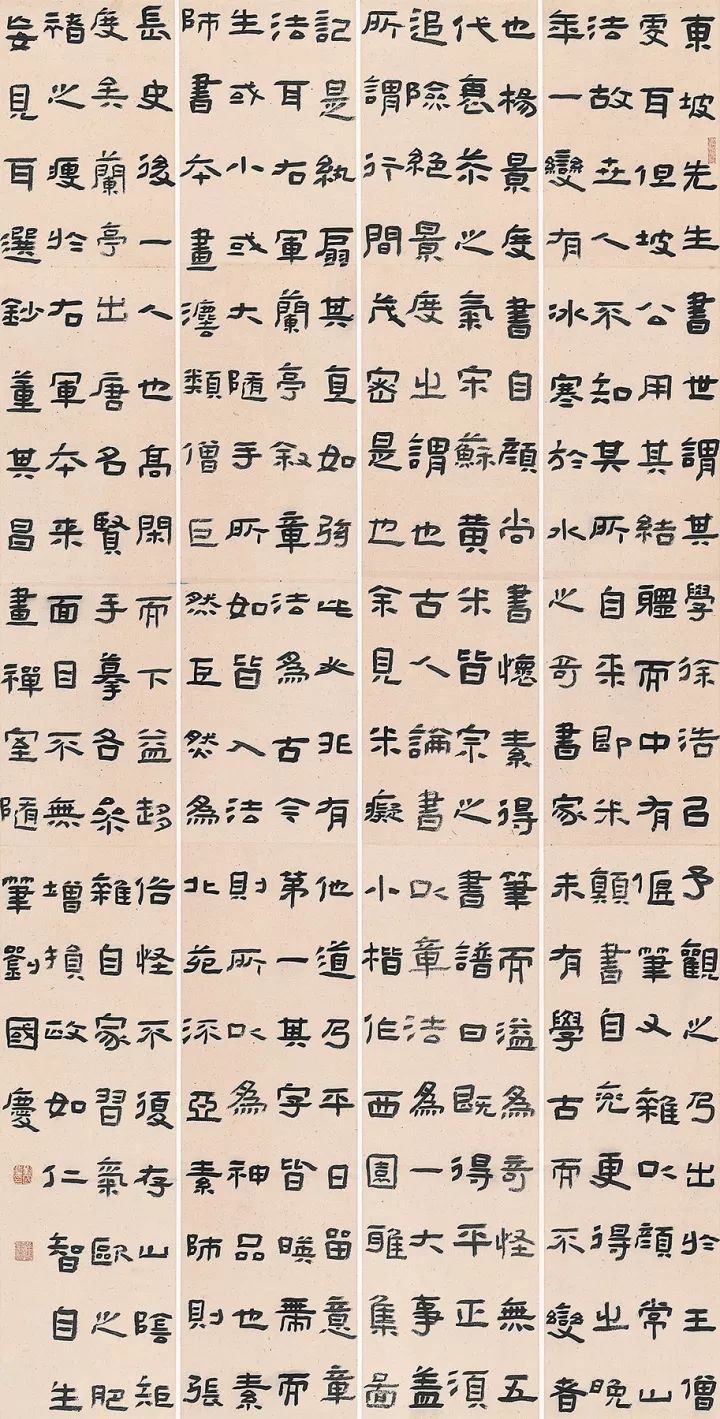 東坡先生書世謂其學徐浩㠯予觀之乃出於王僧
雯耳但坡公用其結軆而中有偃筆又雜以顔常山
法故世人不知其所自来即米顛書自兖更得之晚
年一變有冰寒於水之奇書家未有學古而不變者
也楊景度書自顔尚書懷素得筆而溢為奇怪無五
代衰苶之氣宋蘇黄米皆宗之書譜曰既得平正須
追險絕景度之謂也古人論書以章法為一大事盖
所謂行間茂密是也余見米癡小楷作西園雅集圖
記是紈扇其直如弦此必非有他道乃平日留意章
法耳右軍蘭亭叙章法為古今第一其字皆暎帶而
生或小或大隨手所如皆入法則所以為神品也素
師書本畫法類僧巨然巨然為北苑流亞素師則張
長史後一人也髙閑而下益趍俗怪不復存山陰矩
度矣蘭亭出唐名賢手摹各叅雜自家習氣歐之肥
褚之瘦於右軍本来面目不無增損政如仁智自生
妄見耳選鈔董其昌畫禪室隨筆劉國慶